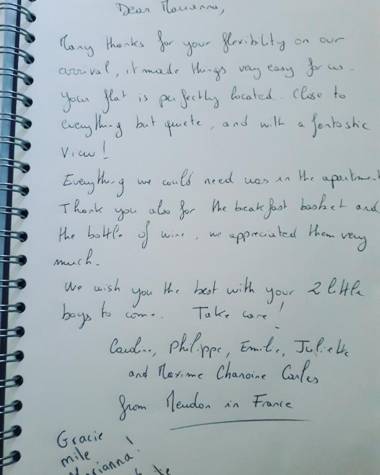 Dear Marianna,
Many thanks for your flexibility on our
arrival, it made things very easy for us.
Your flat is perfectly located. Close to
everything but quiete, and with a fantastic
view!
Everything we could need was in the apartment
Thank you also for the breakfast basket and
the bottle of wine, we appreciated them very
much.
We wish you the best with your 2 little
boys to come. Take care!
Philippe, Emilie, Juliette
and Maxime Chanoine Carles
from Meudon in France
Gracie
mile
Marianna!